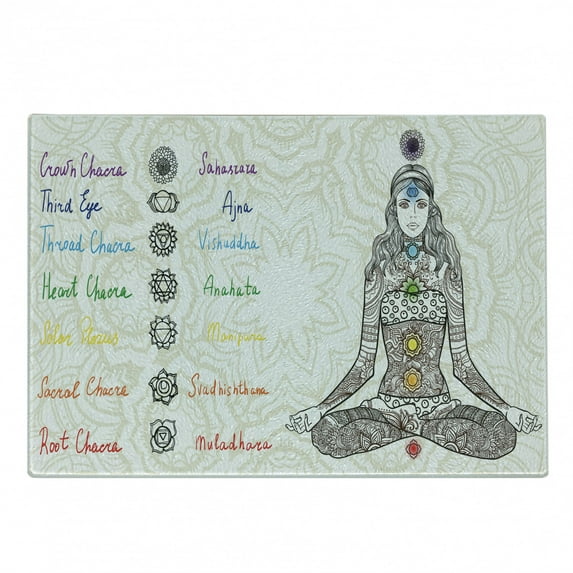 Crown Chacra Sahasrara
Third Eye Ajna
Throad Chacra Vishuddha
Heart Chacra Anahata
Solor Plexus Manipura
Sacral Chacra Svadhishthana
Root Chacra Muladhara